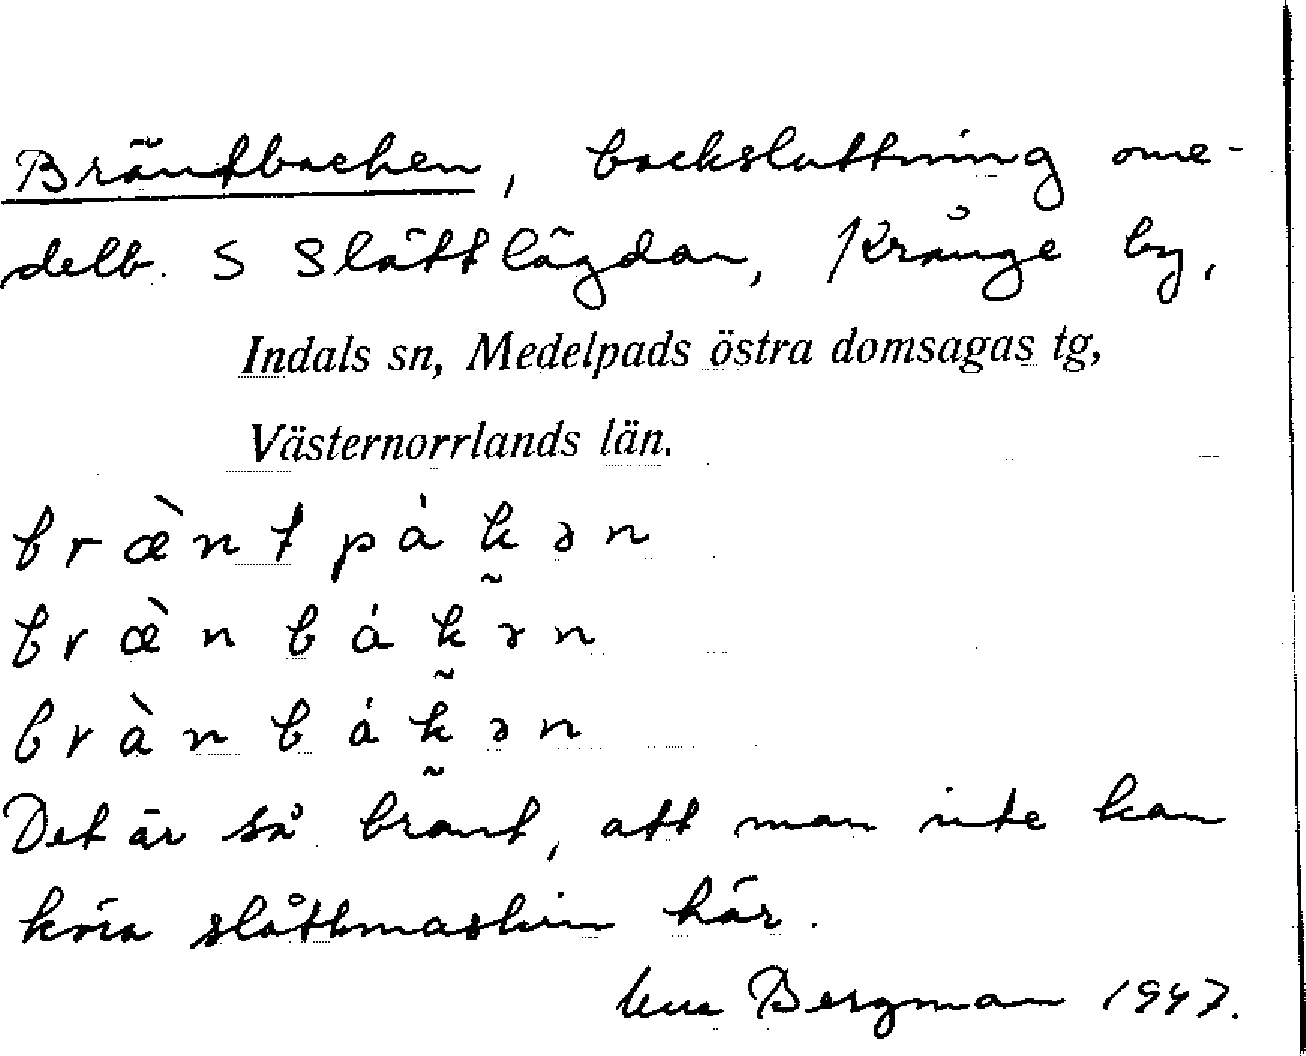 Bräntbacken, backsluttning ome-
delb. S Slåttlägdan, Krånge by,
Indals sn, Medelpads östra domsagas tg,
Västernorrlands län.
bræ̀ntpák̰ən
bræ̀nbák̰ən
brànbák̰ən
Det är så brant, att man inte kan
köra slåttmaskin här.
Bergman 1947.